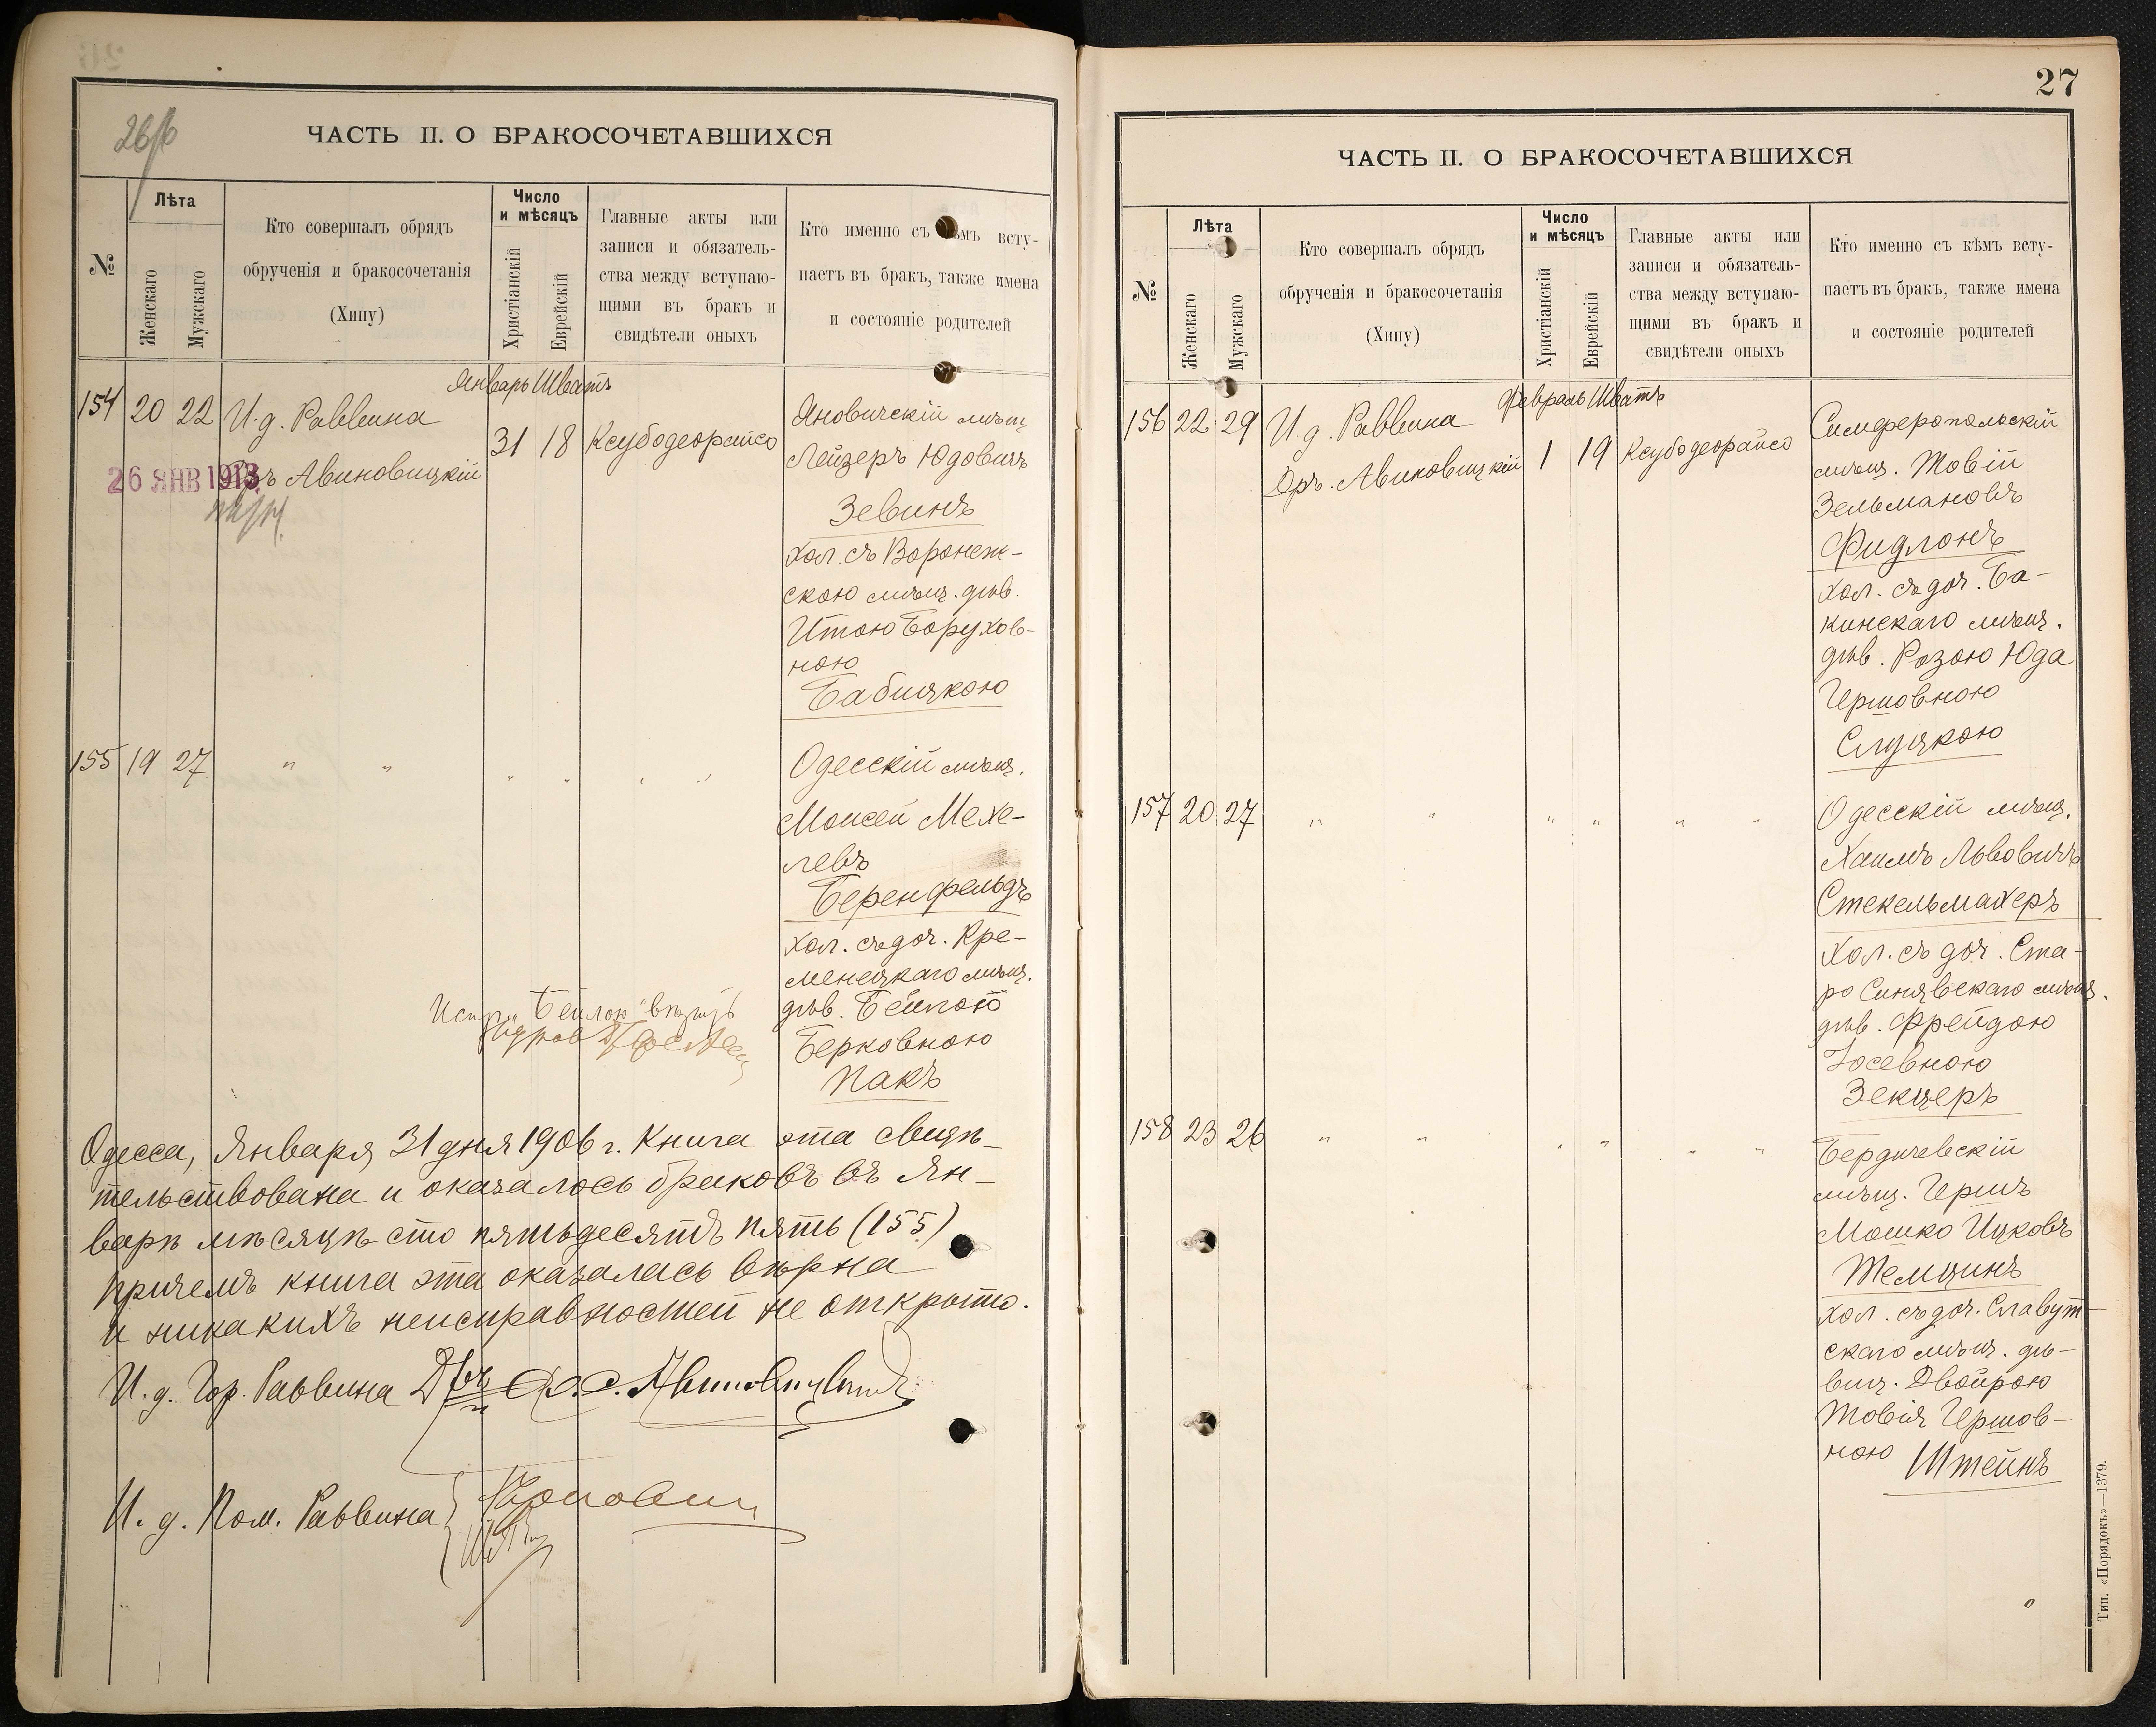 26/б
ЧАСТЬ II. О БРАКОСОЧЕТАВШИХСЯ
№
Лѣта
Женскаго
Мужскаго
Кто совершалъ обрядъ
обрученія и бракосочетанія
(Хипу)
Число
и мѣсяцъ
Христіанскій
Еврейскій
Главные акты или
записи и обязатель-
ства между вступаю-
щими въ бракъ и
свидѣтели оныхъ
Кто именно съ кѣмъ всту-
паетъ въ бракъ, также имена
и состояніе родителей
Январь Шватъ
154 20 22 И.д. Раввина
Дръ Авиновицкій
31 18 Ксубодеорайсо
26 ЯНВ 1913
Яновичскій мѣщ
Лейзеръ Юдовичъ
Зевинъ
хол. съ Воронеж-
скою мѣщ. дѣв.
Итою Борухов-
ною
Бабицкою
155 19 27 " " " " " "
Одесскій мѣщ.
Моисей Мехе-
левъ
Беренфельдъ
хол. съ доч. Кре-
менецкаго мѣщ.
дѣв. Бейлою
Берковною
Пакъ
"Бейлою"
Одесса, Января 31 дня 1906 г. Книга эта свидѣ-
тельствована и оказалось браковъ въ Ян-
варѣ мѣсяцѣ сто пятьдесятъ пять (155)
причемъ книга эта оказалась вѣрна
и никакихъ неисправностей не открыто.
И. д. Гор. Раввина Дръ Авиновицкій
И. д. Пом. Раввина
27
ЧАСТЬ II. О БРАКОСОЧЕТАВШИХСЯ
№
Лѣта
Женскаго
Мужскаго
Кто совершалъ обрядъ
обрученія и бракосочетанія
(Хипу)
Число
и мѣсяцъ
Христіанскій
Еврейскій
Главные акты или
записи и обязатель-
ства между вступаю-
щими въ бракъ и
свидѣтели оныхъ
Кто именно съ кѣмъ всту-
паетъ въ бракъ, также имена
и состояніе родителей
Февраль Шватъ
156 22 29 И.д. Раввина
Дръ. Авиновицкій
1 19 Ксубодеорайсо
Симферопольскій
мѣщ. Товій
Зельмановъ
Фидлонъ
хол. съ доч. Ба-
кинскаго мѣщ.
дѣв. Розою Юда
Гершовною
Слуцкою
157 20 27 " " " " " "
Одесскій мѣщ.
Хаимъ Львовичъ
Стекельмахеръ
хол. съ доч. Ста-
ро Синявскаго мѣщ.
дѣв. Фрейдою
Іосевною
Зекцеръ
158 23 26 " " " " " "
Бердичевскій
мѣщ. Гершъ
Мошко Ицковъ
Темцинъ
хол. съ доч. Славут-
скаго мѣщ. дѣ-
виц. Двойрою
Товія Гершов-
ною Штейнъ
Тип. «Порядокъ»—1379.